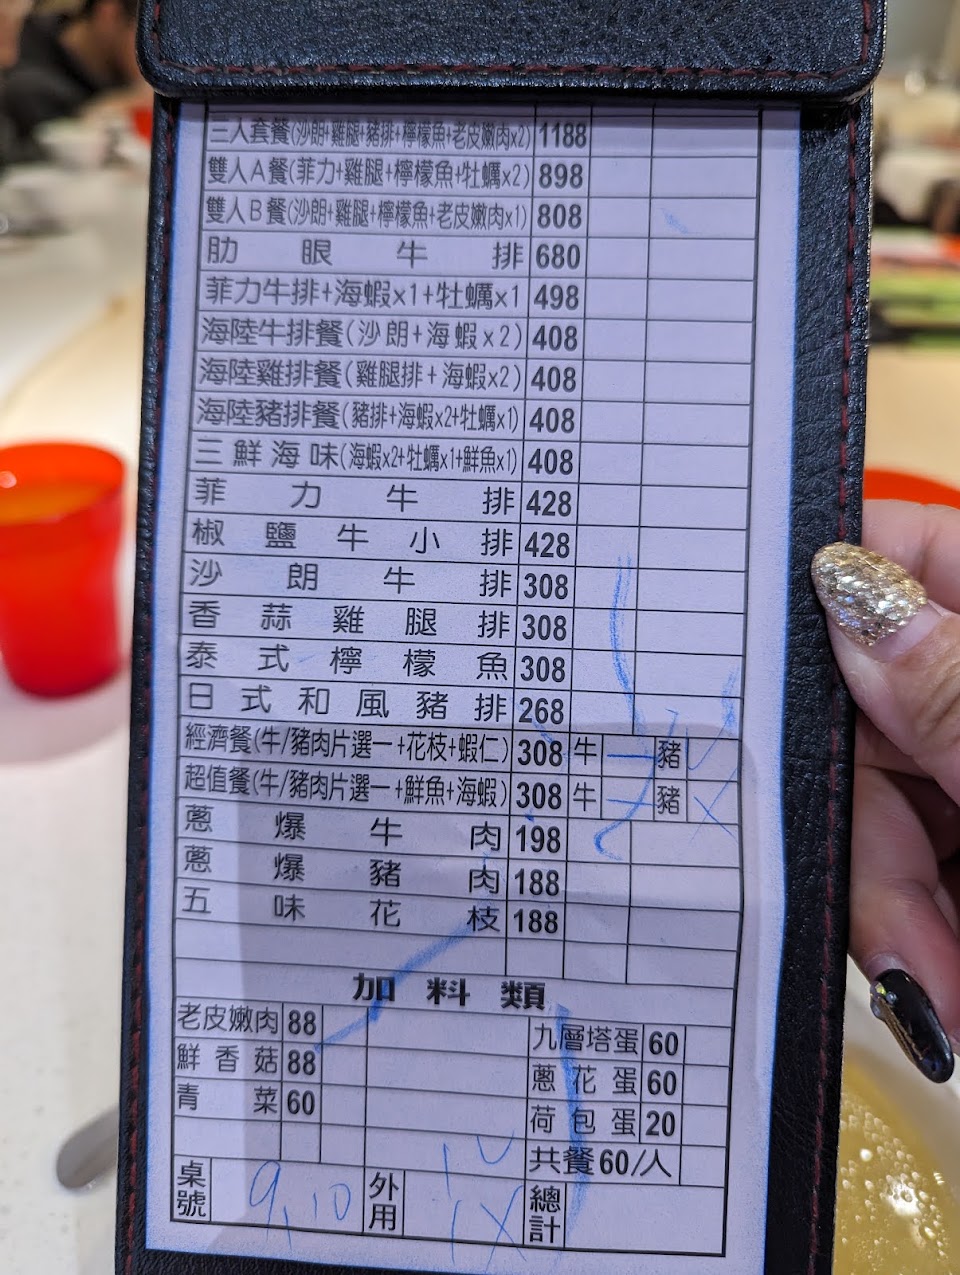 三人套餐(沙朗+雞腿+豬排+檸檬魚+老皮嫩肉x2) 1188
雙人A餐(菲力+雞腿+檸檬魚+牡蠣x2) 898
雙人B餐(沙朗+雞腿+檸檬魚+老皮嫩肉x1) 808
肋眼牛排 680
菲力牛排+海蝦x1+牡蠣x1 498
海陸牛排餐(沙朗+海蝦x2) 408
海陸雞排餐(雞腿排+海蝦x2) 408
海陸豬排餐(豬排+海蝦x2+牡蠣x1) 408
三鮮海味(海蝦x2+牡蠣x1+鮮魚x1) 408
菲力牛排 428
椒鹽牛小排 428
沙朗牛排 308
香蒜雞腿排 308
泰式檸檬魚 308
日式和風豬排 268
經濟餐(牛/豬肉片選一+花枝+蝦仁) 308 牛 豬
超值餐(牛/豬肉片選一+鮮魚+海蝦) 308 牛 豬
蔥爆牛肉 198
蔥爆豬肉 188
五味花枝 188
加料類
老皮嫩肉 88 九層塔蛋 60
鮮香菇 88 蔥花蛋 60
青菜 60 荷包蛋 20
共餐60/人
桌號 9,10 外用 總計